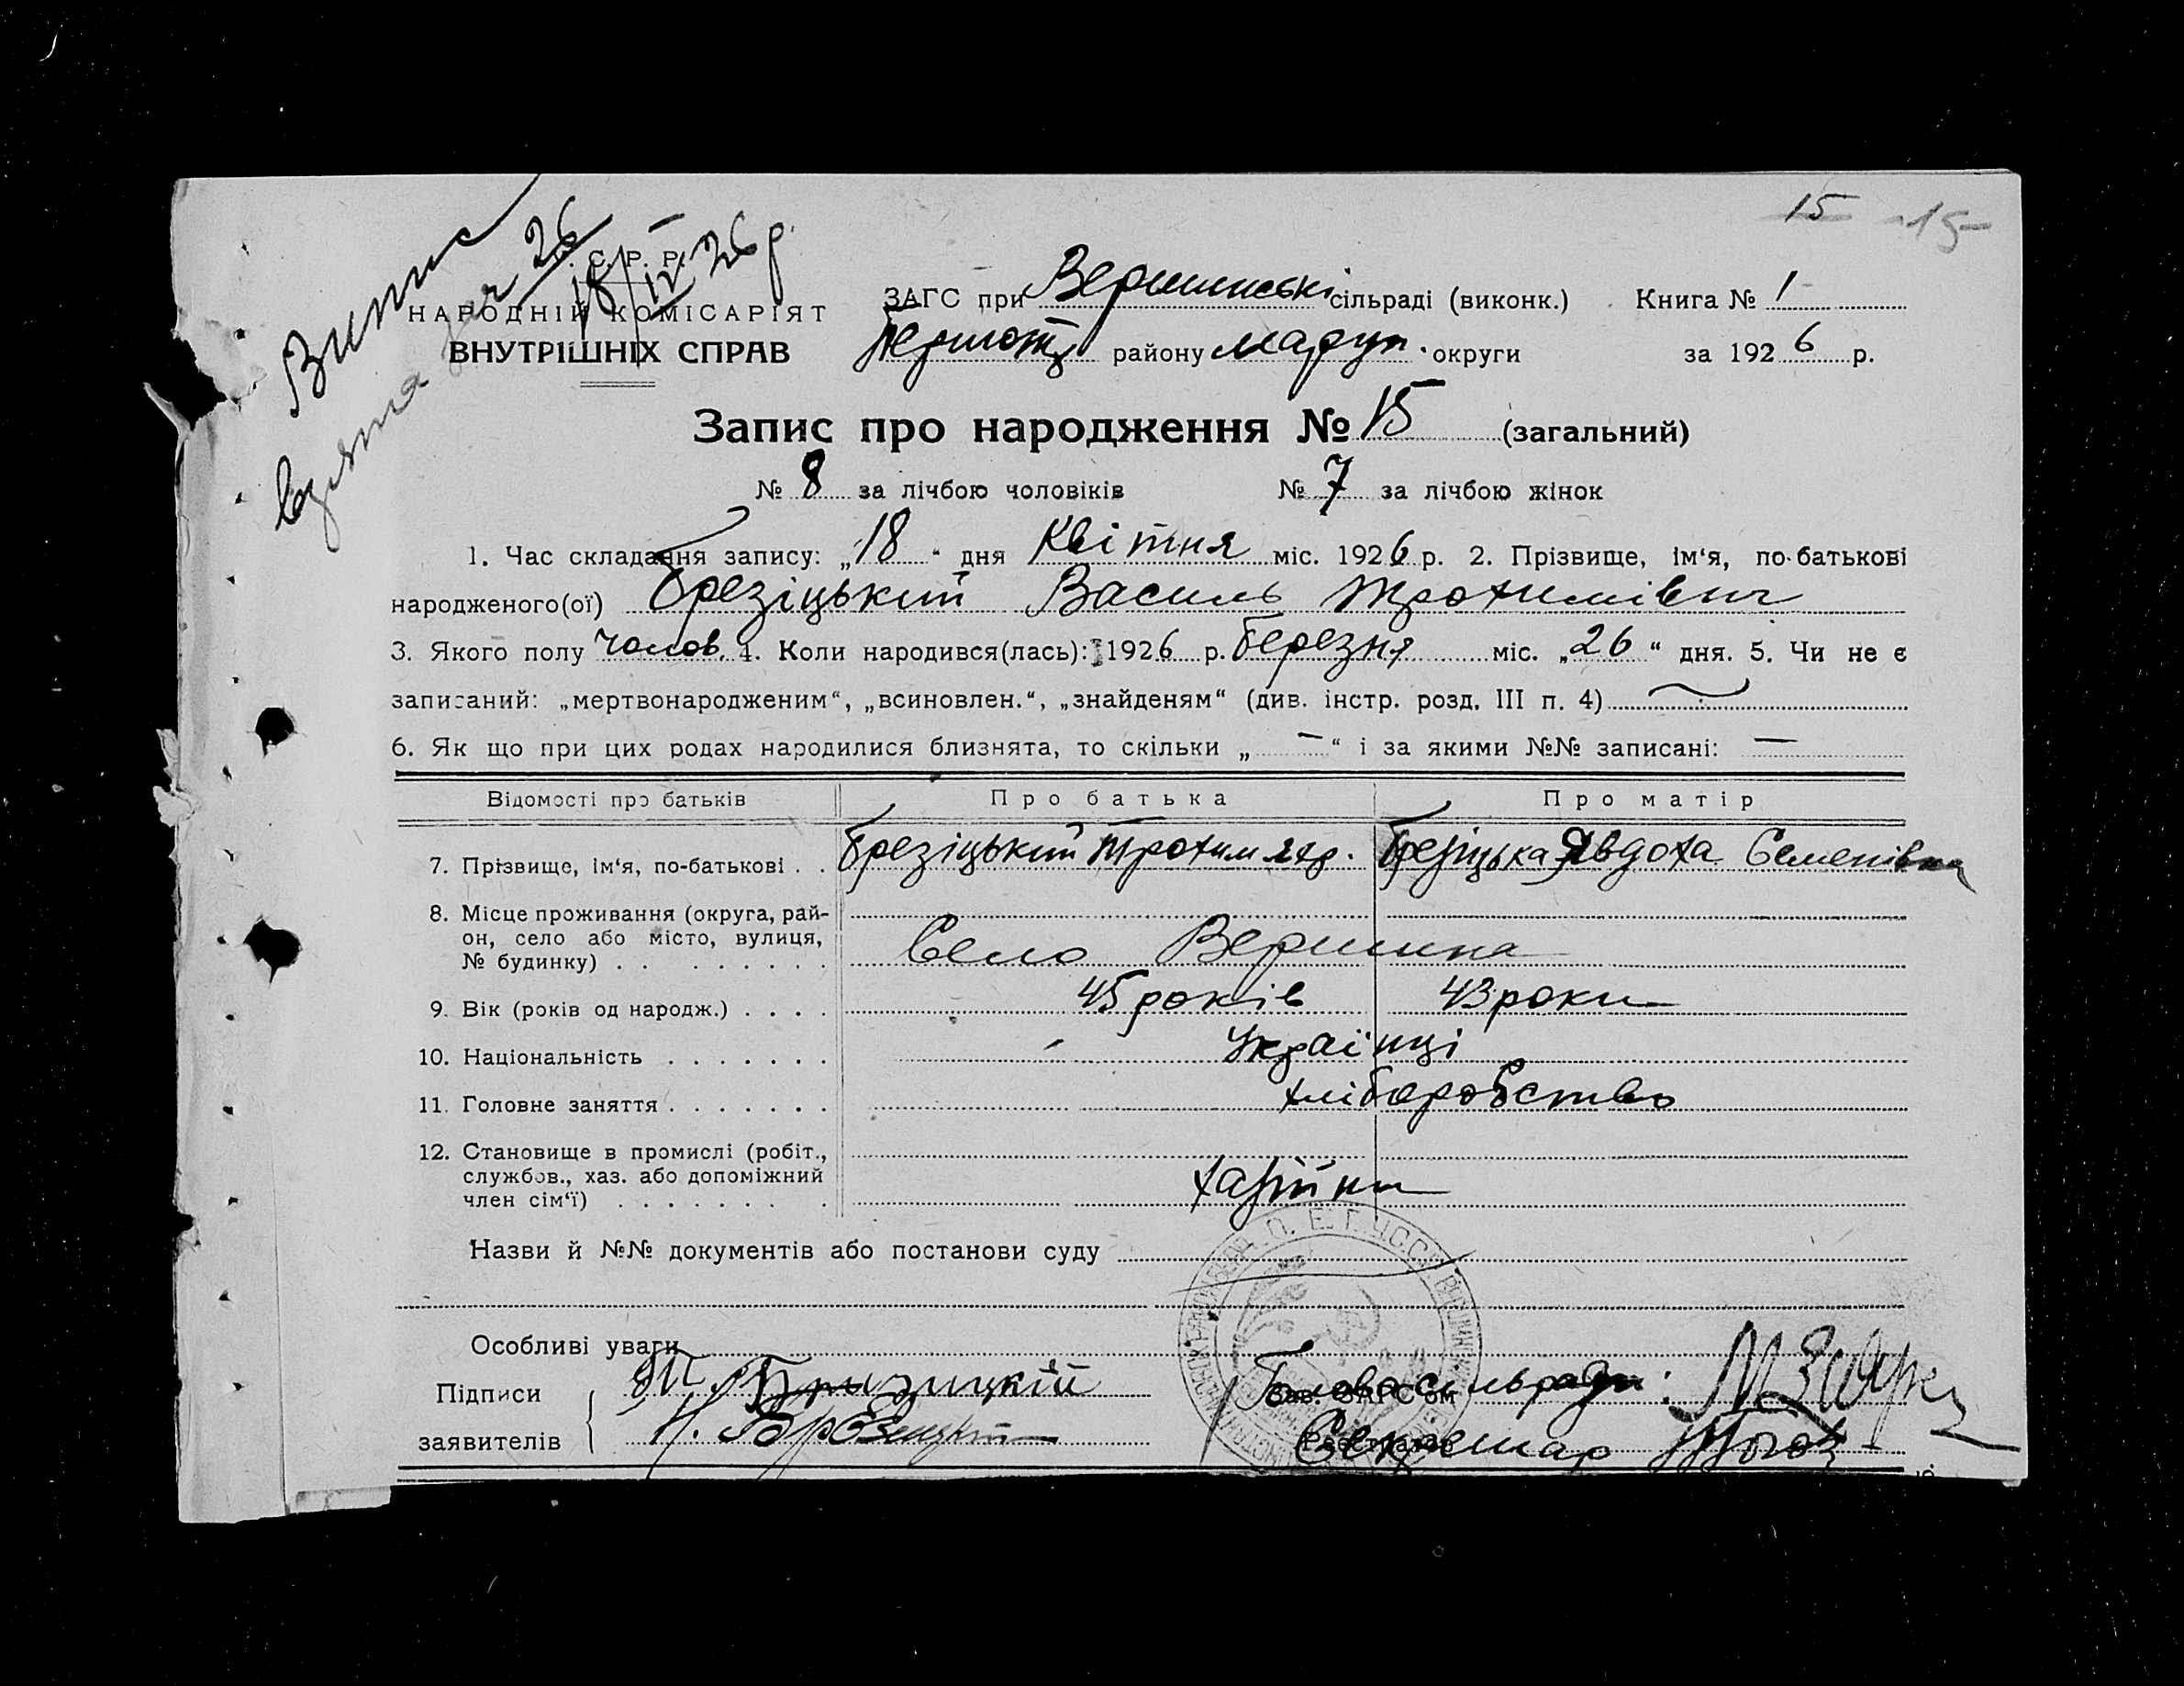 15 -15-
Випис
взята
26
18/IV 26 р.
С. Р. Р.
НАРОДНІЙ КОМІСАРІЯТ
ВНУТРІШНІХ СПРАВ
ЗАГС при Вершинські сільраді (виконк.) Книга № 1
району Маруп. округи за 1926 р.
Запис про народження № 15 (загальний)
№ 8 за лічбою чоловіків № 7 за лічбою жінок
1. Час складання запису: „18“ дня Квітня міс. 1926 р. 2. Прізвище, ім‘я, по-батькові
народженого(ої) Брезіцький Василь Трохимівич
3. Якого полу чолов. 4. Коли народився(лась): 1926 р. березня міс. „26“ дня. 5. Чи не є
записаний: „мертвонародженим“, „всиновлен.“, „знайденям“ (див. інстр. розд. III п. 4)
6. Як що при цих родах народилися близнята, то скільки „ — “ і за якими №№ записані: —
Відомості про батьків Про батька Про матір
7. Прізвище, ім‘я, по-батькові . . Брезіцький Трохим Брезіцька Явдоха Семенівна
8. Місце проживання (округа, рай-
он, село або місто, вулиця,
№ будинку) . . . . . . . . Село Вершина
9. Вік (років од народж.) . . . . 45 років 43 роки
10. Національність . . . . . . . Українці
11. Головне заняття . . . . . . . хліборобство
12. Становище в промислі (робіт.,
службов., хаз. або допоміжний
член сім‘ї) . . . . . . . . хазіїни
Назви й №№ документів або постанови суду
Особливі уваги
Підписи Т. Бризицкій Голова сільради:
заявителів Секретар